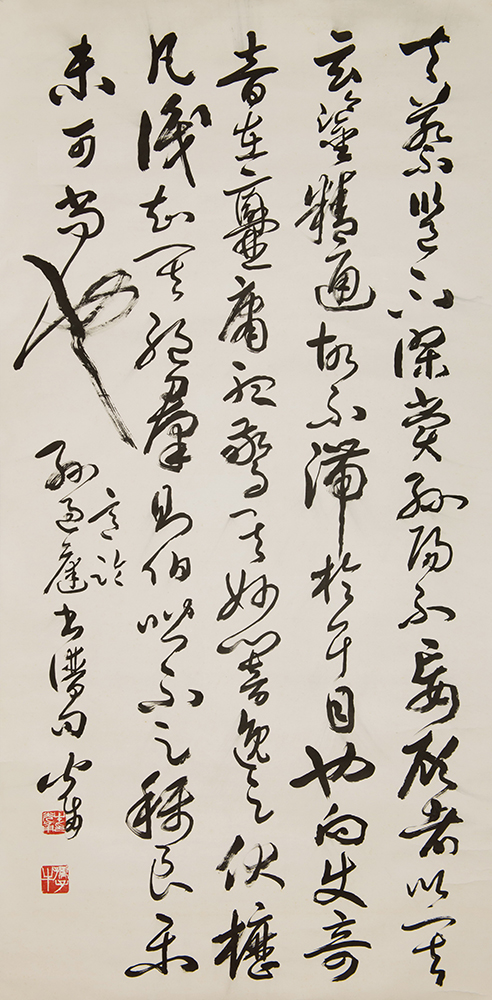 夫蔡邕不謬賞孫陽不妄顧者以其
玄鑒精通故不滯於耳目也向使奇
音在爨庸聽驚其妙響逸足伏櫪
凡識知其絕羣則伯喈不足稱良樂
未可尚也
孫過庭書譜句